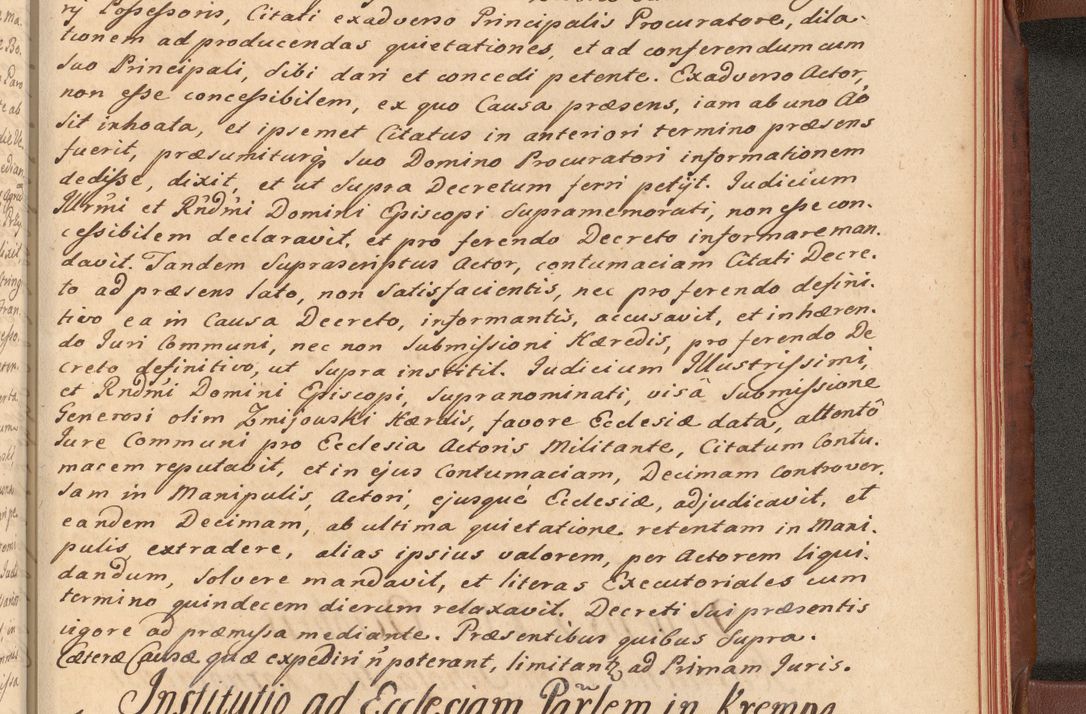 rij Possessoris, Citati exadverso Principalis Procuratore, dila-
tionem ad producendas quietationes, et ad conferendum cum
suo Principali, sibi dari et concedi petente. Exadverso Actor,
non esse concessibilem, ex quo Causa præsens, iam ab uno Ao
sit inhoata, et ipsemet Citatus in anteriori termino præsens
fuerit, præsumiturq; suo Domino Procuratori informationem
dedisse, dixit, et ut supra Decretum ferri petijt. Iudicium
Illrmi et Rndmi Domini Episcopi supramemorati, non esse con-
cessibilem declaravit, et pro ferendo Decreto informare man-
davit. Tandem suprascriptus Actor, contumaciam Citati Decre-
to ad præsens lato, non satisfacientis, nec pro ferendo defini-
tivo ea in Causa Decreto, informantis, accusavit, et inhæren-
do Iuri Communi, nec non submissioni Hæredis, pro ferendo De
creto definitivo, ut supra institit. Iudicium Illustrissimi,
et Rndmi Domini Episcopi, supranominati, visâ submissione
Generosi olim Zmijouski Hærdis, favore Ecclesiæ data, attentô
Iure Communi pro Ecclesia Actoris Militante, Citatum Contu-
macem reputavit, et in ejus Contumaciam, Decimam Controver-
sam in Manipulis, Actori, ejusqué Ecclesiæ, adjudicavit, et
eandem Decimam, ab ultima quietatione retentam in Mani-
pulis, extradere, alias ipsius valorem, per Actorem liqui-
dandum, solvere mandavit, et literas Executoriales cum
termino quindecem dierum relaxavit. Decreti sui præsentis
vigore ad præmissa mediante. Præsentibus quibus supra.
Cæteræ Causæ quæ expediri ñ poterant, limitantz ad Primam Juris.
Institutio ad Ecclesiam Parlem in Krempa